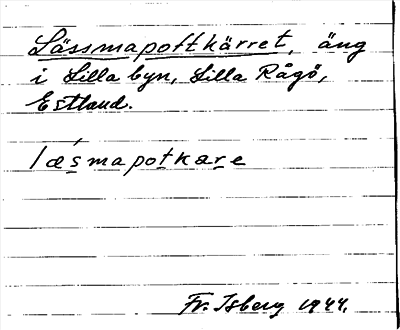 Lässmapottkärret, äng
i Lilla byn, Lilla Rågö,
Estland.
læ´smapotkare
Fr. Isberg 1944.